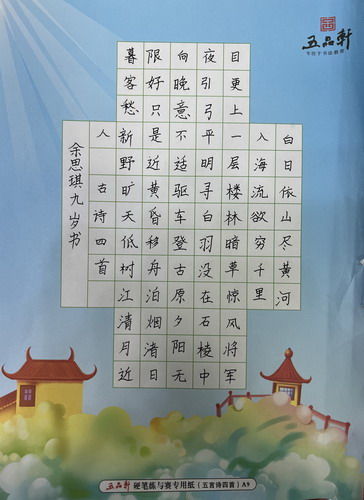 五品軒
专注于书法教育
白日依山尽黄河
入海流欲穷千里
目更上一层楼林暗草惊风将军
夜引弓平明寻白羽没在石棱中
向晚意不适驱车登古原夕阳无
限好只是近黄昏移舟泊烟渚日
暮客愁新野旷天低树江清月近
人 古诗四首
余思琪九岁书
五品軒 硬笔练与赛专用纸（五言诗四首）A9